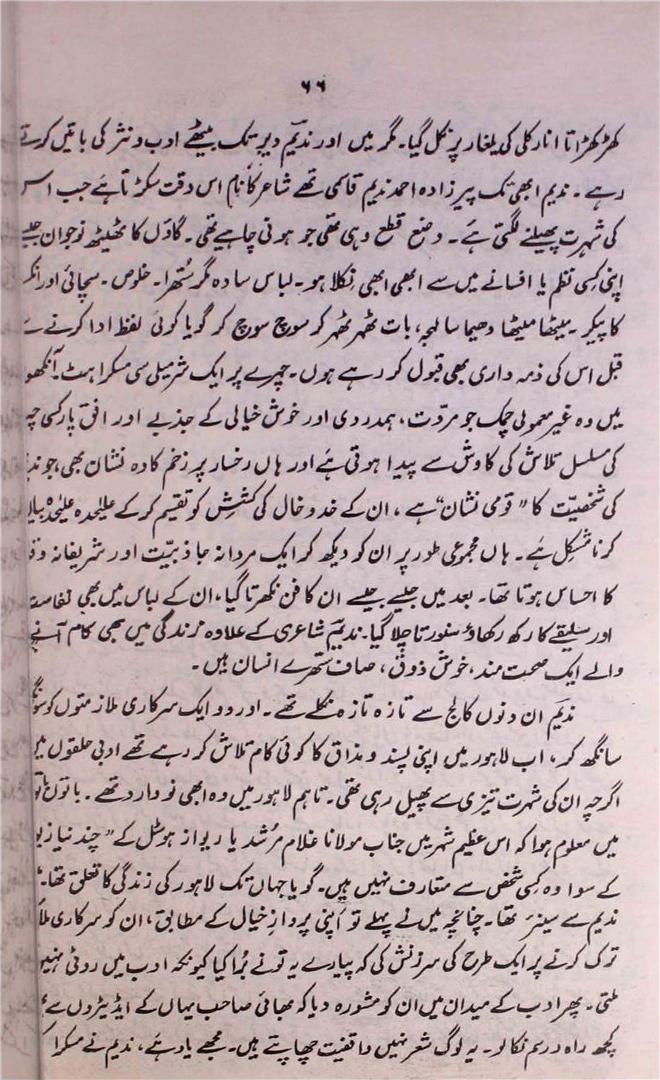 ۶۶
کھڑکھڑاتا انارکلی کی یلغار پر نکل گیا۔ مگر میں اور ندیم دیر تک بیٹھے ادب و نثر کی باتیں کرتے
رہے۔ ندیم ابھی تک پیرزادہ احمد ندیم قاسمی تھے شاعر کا نام اس وقت سکڑتا ہے جب اس
کی شہرت پھیلنے لگتی ہے۔ وضع قطع وہی تھی جو ہونی چاہیے تھی۔ گاؤں کا ٹھیٹھ نوجوان جیسے
اپنی کسی نظم یا افسانے میں سے ابھی ابھی نکلا ہو۔ لباس سادہ مگر ستھرا۔ خلوص۔ سچائی اور
کا پیکر۔ میٹھا میٹھا دھیما سا لہجہ، بات ٹھہر ٹھہر کر سوچ سوچ کر گویا کوئی لفظ ادا کرنے سے
قبل اس کی ذمہ داری بھی قبول کر رہے ہوں۔ چہرے پر ایک شرمیلی سی مسکراہٹ۔
میں وہ غیر معمولی چمک جو مروّت، ہمدردی اور خوش خیالی کے جذبے اور افق پار کسی
کی مسلسل تلاش کی کاوش سے پیدا ہوتی ہے اور ہاں رخسار پر زخم کا وہ نشان بھی، جو
کی شخصیّت کا "قومی نشان" ہے، ان کے خدوخال کی کشش کو تقسیم کر کے علیٰحدہ علیٰحدہ
کرنا مشکل ہے۔ ہاں مجموعی طور پر ان کو دیکھ کر ایک مردانہ جاذبیّت اور شریفانہ
کا احساس ہوتا تھا۔ بعد میں جیسے جیسے ان کا فن نکھرتا گیا، ان کے لباس میں بھی نفاست
اور سلیقے کا رکھ رکھاؤ سنورتا چلا گیا۔ ندیم شاعری کے علاوہ زندگی میں بھی کام آنے
والے ایک صحت مند، خوش ذوق، صاف ستھرے انسان ہیں۔
ندیم ان دنوں کالج سے تازہ تازہ نکلے تھے۔ اور دو ایک سرکاری ملازمتوں کو سونگھ
سانگھ کر، اب لاہور میں اپنی پسند و مذاق کا کوئی کام تلاش کر رہے تھے ادبی حلقوں میں
اگرچہ ان کی شہرت تیزی سے پھیل رہی تھی۔ تاہم لاہور میں وہ ابھی نووارد تھے۔ باتوں باتوں
میں معلوم ہوا کہ اس عظیم شہر میں جناب مولانا غلام مرشد یا ریواز ہوسٹل کے "چند
کے سوا وہ کسی شخص سے متعارف نہیں ہیں۔ گویا جہاں تک لاہور کی زندگی کا تعلق تھا۔
ندیم سے سینئر تھا۔ چنانچہ میں نے پہلے تو اپنی پروازِ خیال کے مطابق، ان کو سرکاری
ترک کرنے پر ایک طرح کی سرزنش کی کہ پیارے یہ تو نے بُرا کیا کیونکہ ادب میں روٹی نہیں
ملتی۔ پھر ادب کے میدان میں ان کو مشورہ دیا کہ بھائی صاحب یہاں کے ایڈیٹروں سے
کچھ راہ و رسم نکالو۔ یہ لوگ شعر نہیں واقفیت چھاپتے ہیں۔ مجھے یاد ہے، ندیم نے مسکرا